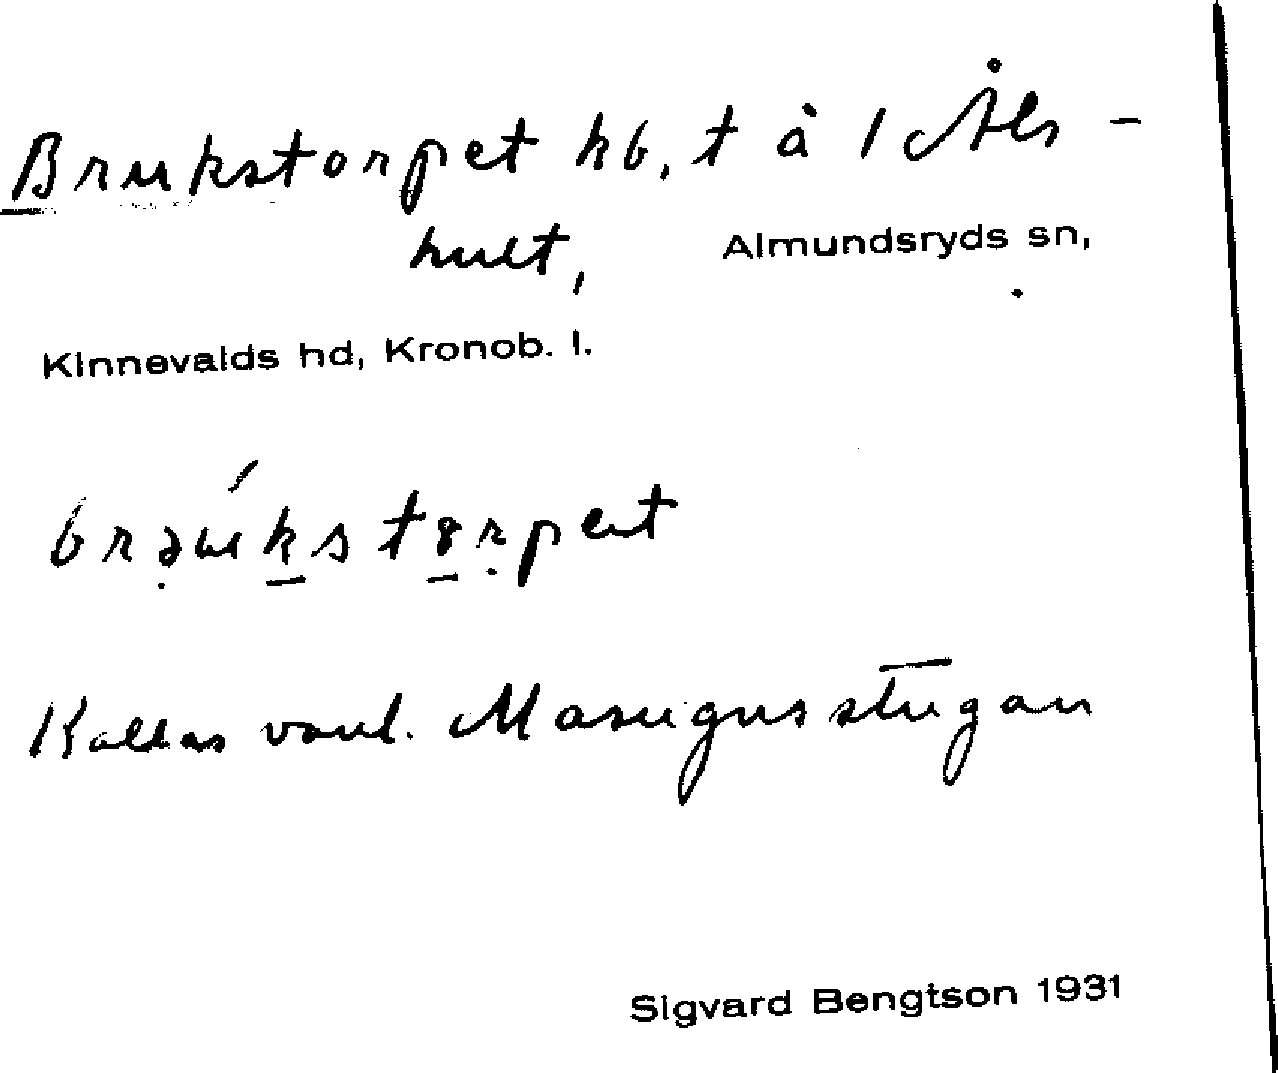 Brukstorpet hb, t å 1 Åls-
hult, Almundsryds sn,
Kinnevalds hd, Kronob. l.
Kallas vanl. Masugnsstugan
Sigvard Bengtson 1931